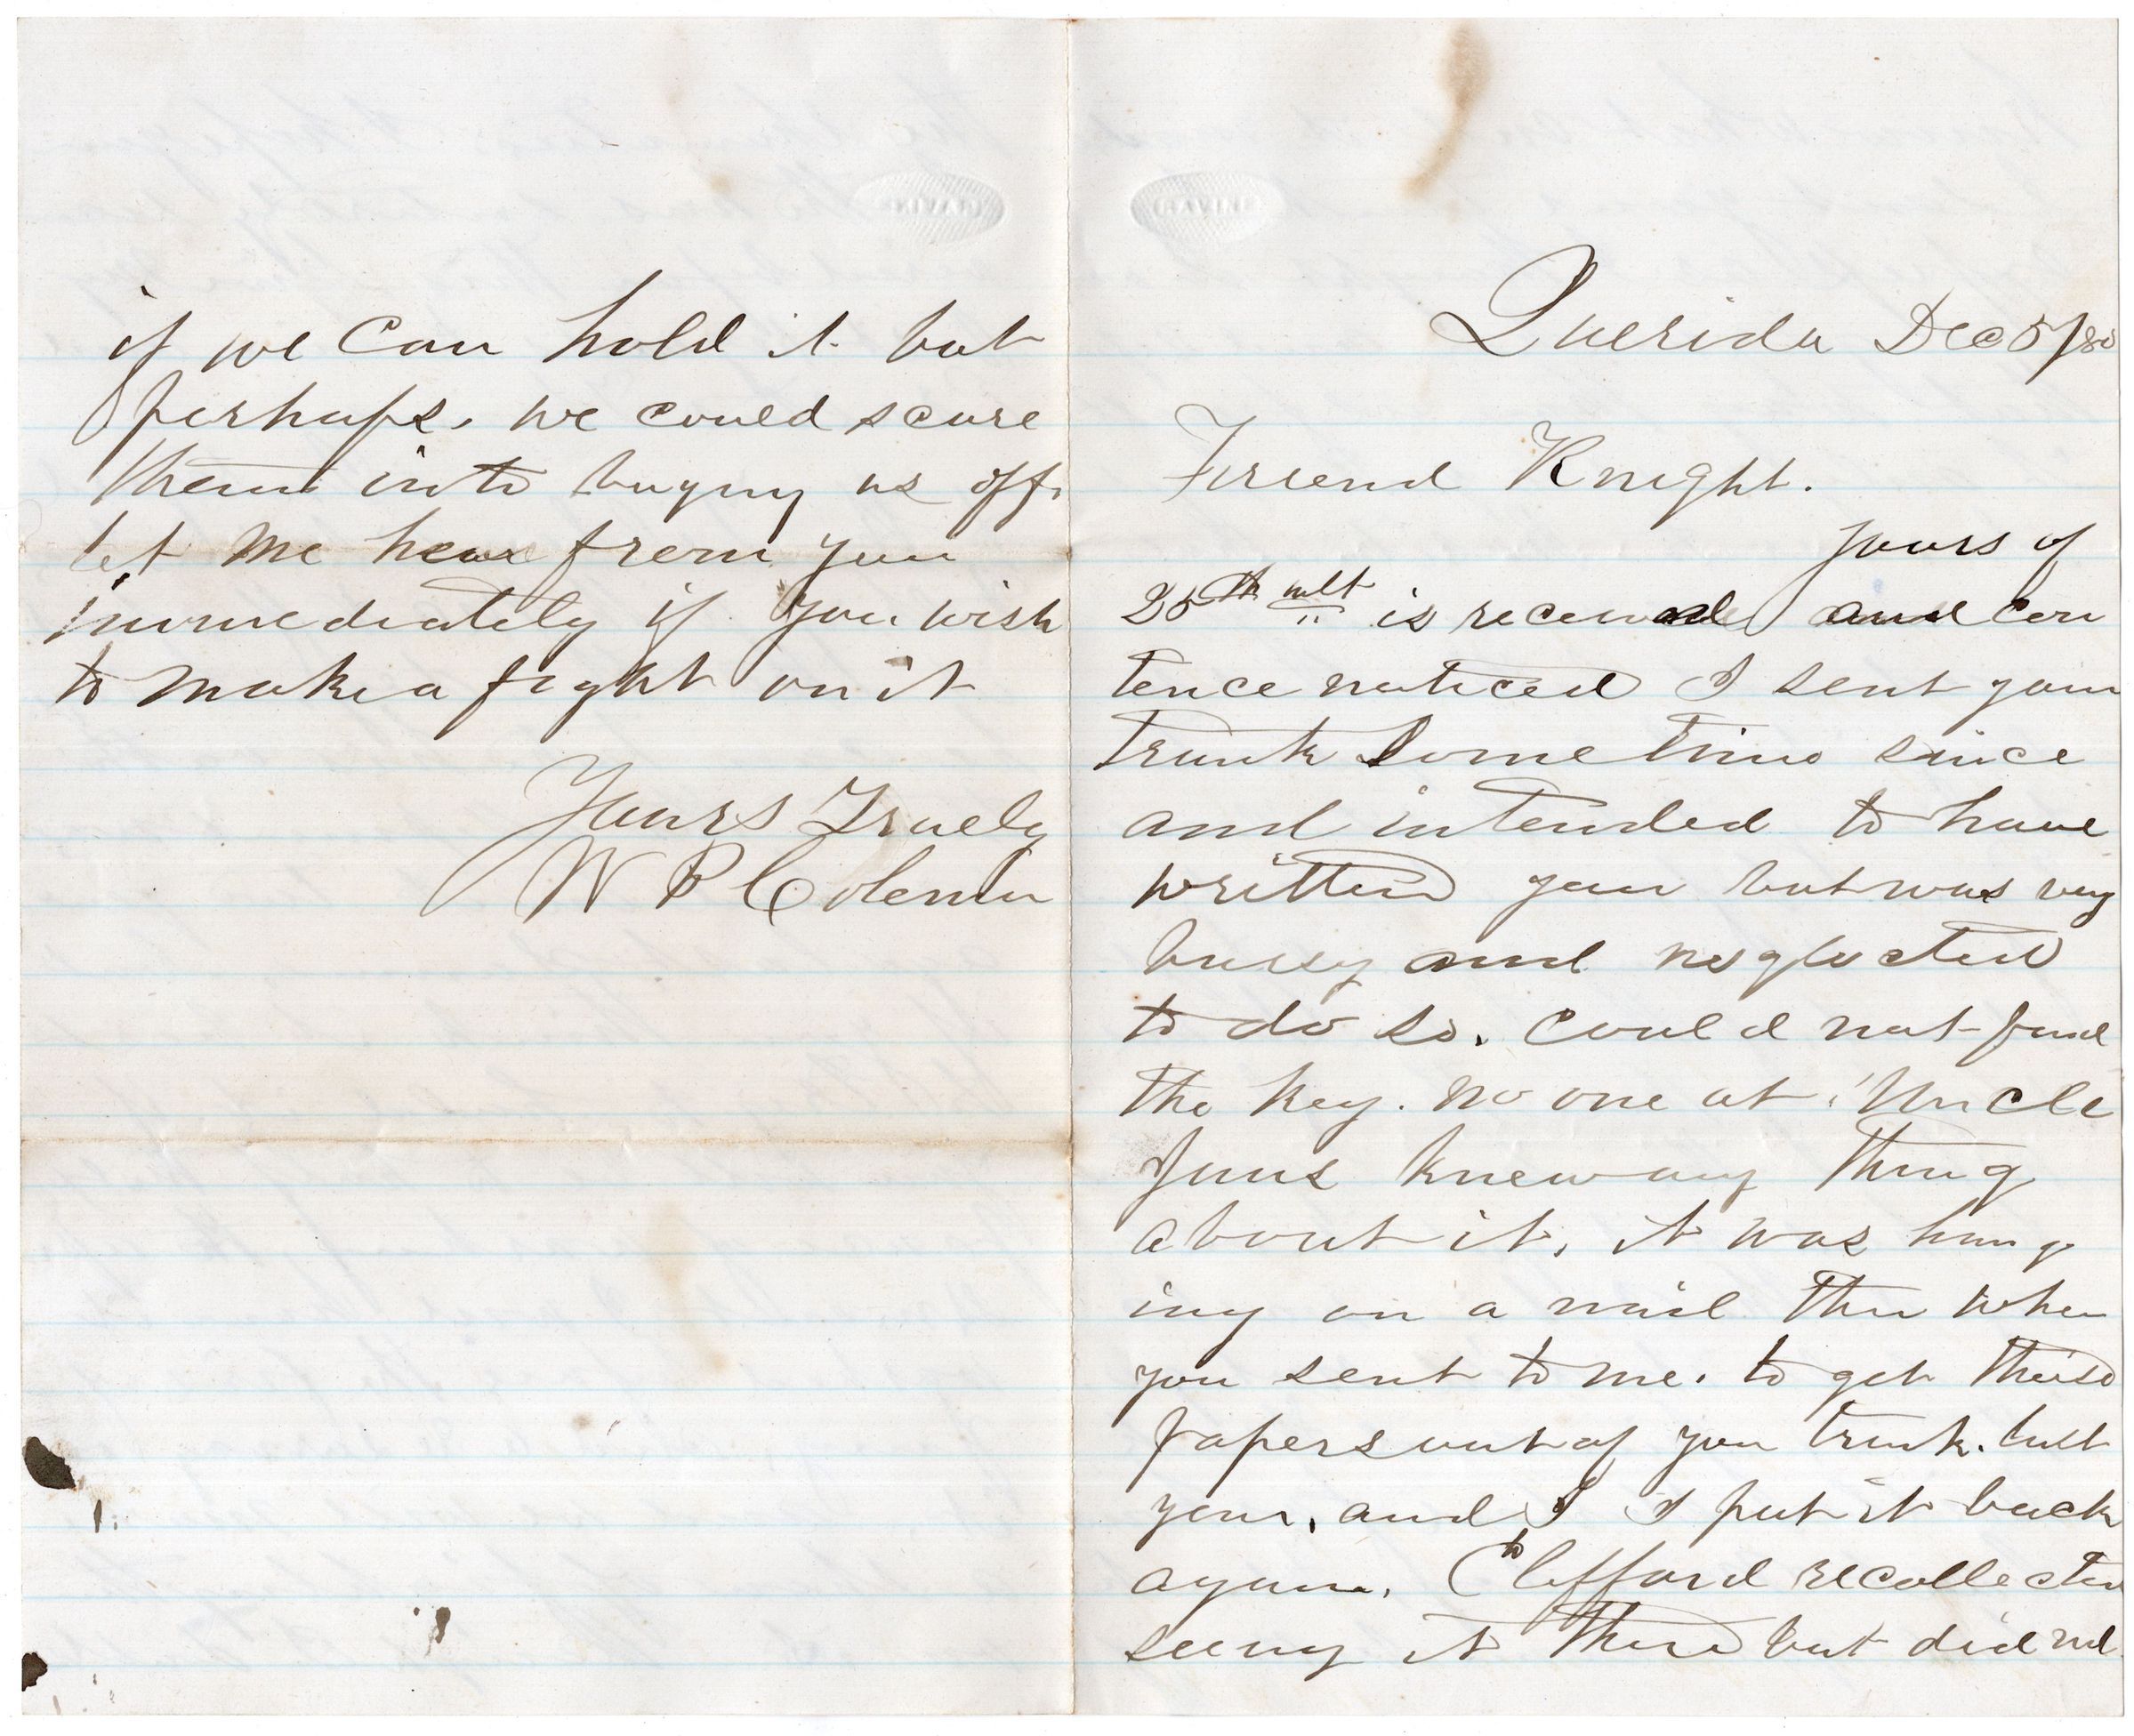 Querida Dec 5/80
Friend Knight.
Yours of
25th ult is received and con
tence noticed I sent your
trunk some time since
and intended to have
written you but was very
bussy and neglected
to do so. could not find
the key. no one at Uncle
knew any thing
about it, it was hang
ing on a nail then when
you sent to me. to get those
papers out of you trunk.
your, and I I put it back
again. Clifford recollected
seeing it there but did not
if we can hold it but
perhaps, we could scare
them into buying us off.
let me hear from you
immediately if you wish
to make a fight on it
Yours Truely
W P Coleman